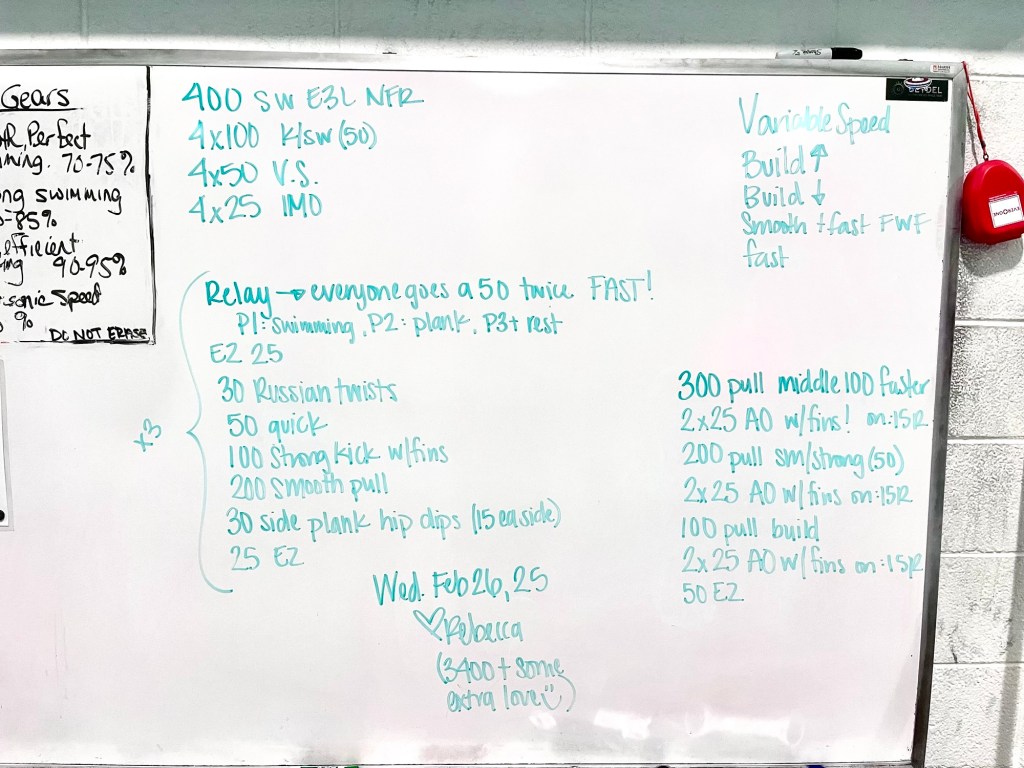 Gears
Perfect
70-75%
swimming
-85%
efficient
90-95%
sonic speed
%
DO NOT ERASE
400 SW E3L NFR
4x100 K/sw (50)
4x50 V.S.
4x25 IMO
Variable Speed
Build ↑
Build ↓
Smooth + fast FWF
fast
Relay → everyone goes a 50 twice FAST!
P1: swimming, P2: plank, P3+ rest
EZ 25
30 Russian twists
50 quick
100 Strong kick w/fins
200 Smooth pull
30 side plank hip dips (15 ea side)
25 EZ
x3
300 pull middle 100 faster
2x25 AO w/fins! on :15R
200 pull sm/strong (50)
2x25 AO w/fins on :15R
100 pull build
2x25 AO w/fins on :15R
50 EZ
Wed. Feb 26, 25
♡ Rebecca
(3400 + some
extra love ☺)